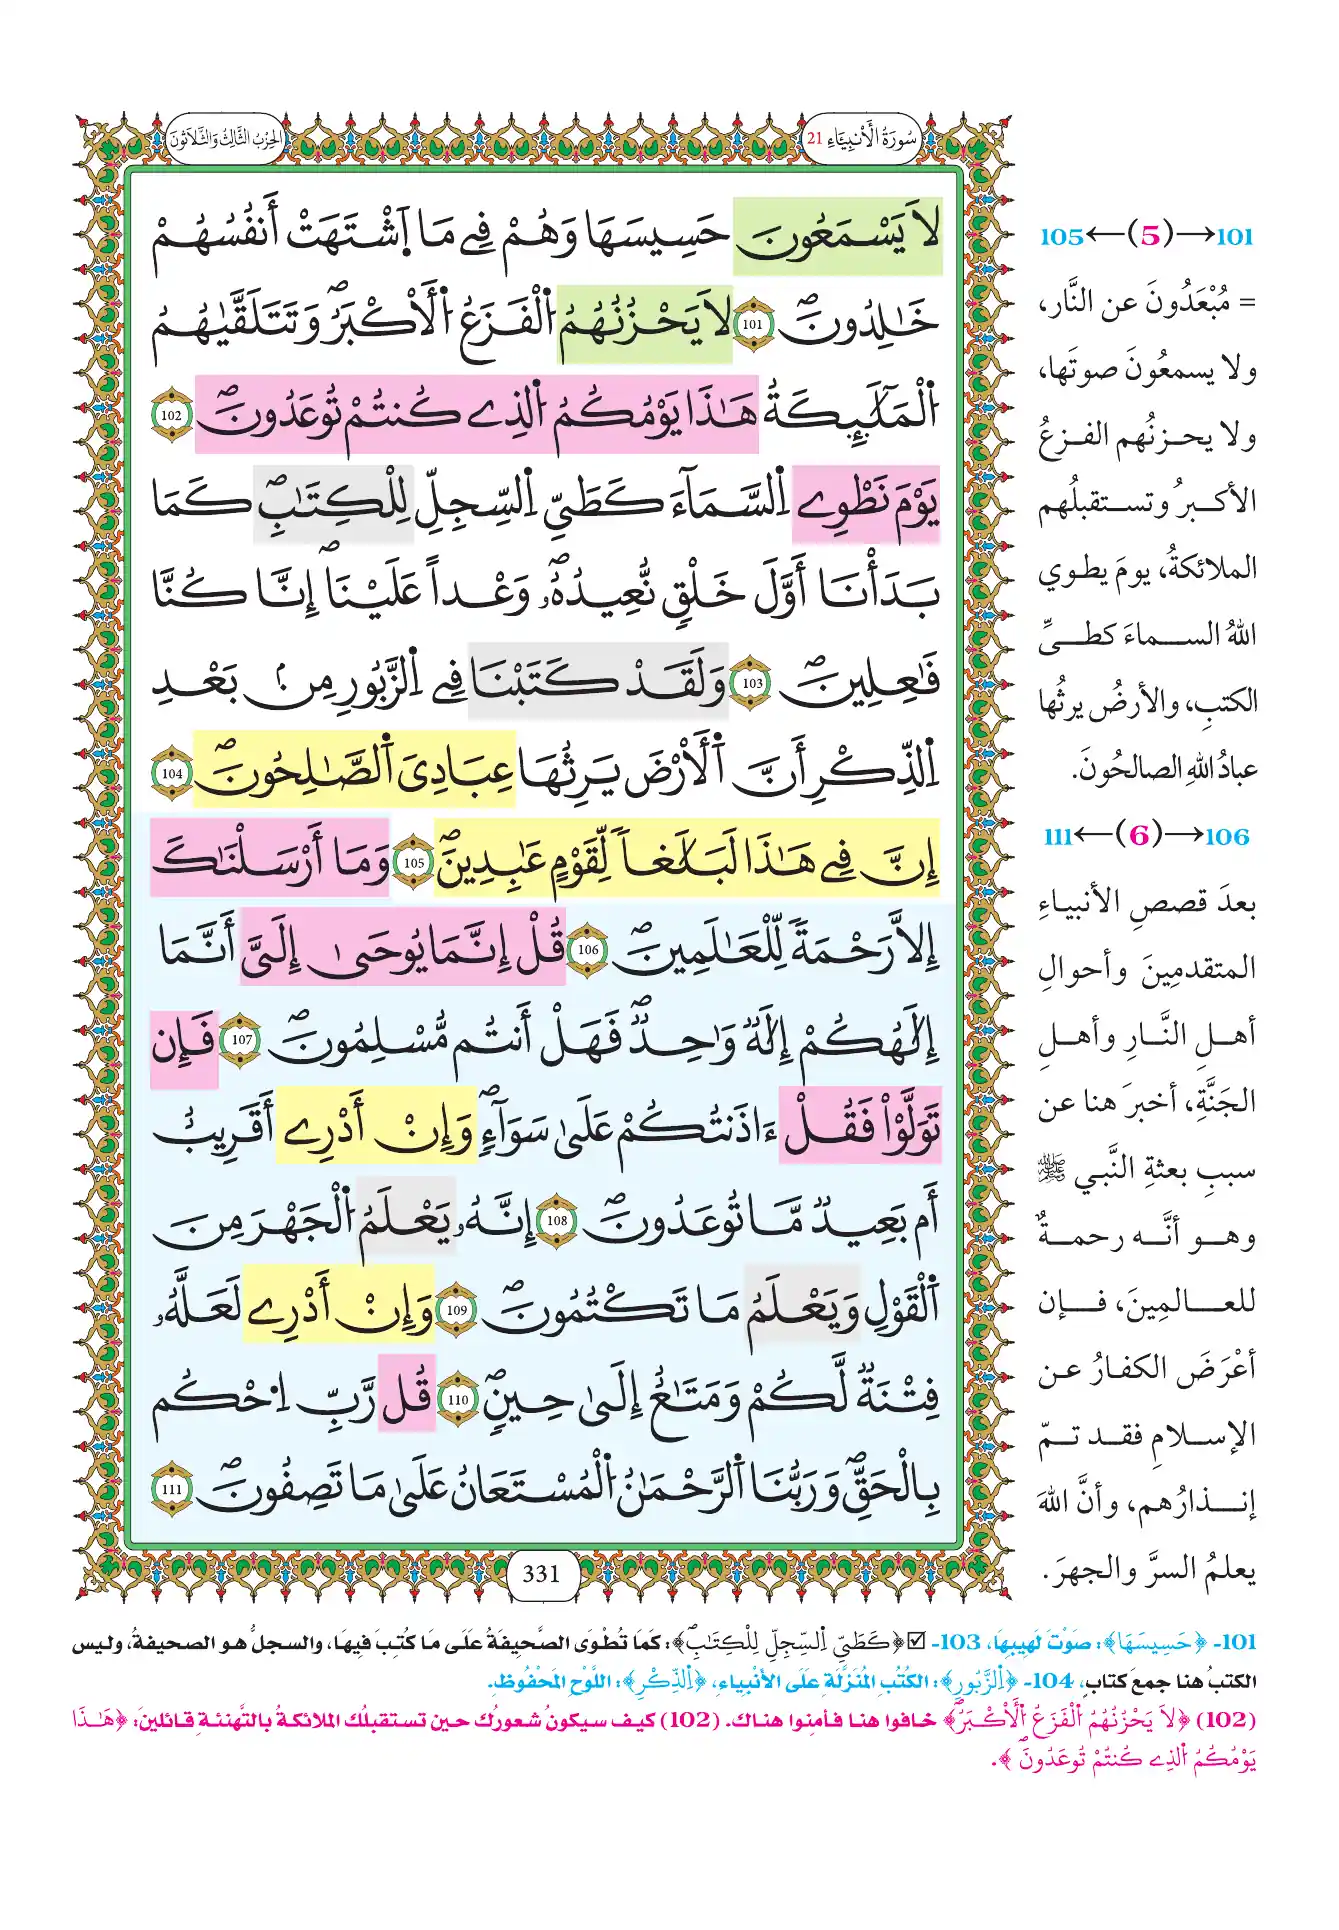 سُورَةُ الْأَنبِيَاءِ 21
الحِزْبُ الثَّالِثُ وَالثَّلَاثُونَ
لَا يَسْمَعُونَ حَسِيسَهَا وَهُمْ فِے مَا اَشْتَهَتْ أَنفُسُهُمْ
خَٰلِدُونَ 101 لَا يَحْزُنُهُمُ اُلْفَزَعُ اُلْأَكْبَرُ وَتَتَلَقَّىٰهُمُ
اُلْمَلَٰٓئِكَةُ هَٰذَا يَوْمُكُمُ اُلذِے كُنتُمْ تُوعَدُونَ 102
يَوْمَ نَطْوِے اِلسَّمَآءَ كَطَيِّ اِلسِّجِلِّ لِلْكِتَٰبِ كَمَا
بَدَأْنَا أَوَّلَ خَلْقٍ نُّعِيدُهُۥ وَعْداً عَلَيْنَا إِنَّا كُنَّا
فَٰعِلِينَ 103 وَلَقَدْ كَتَبْنَا فِے اِلزَّبُورِ مِنۢ بَعْدِ
اِلذِّكْرِ أَنَّ اَلْأَرْضَ يَرِثُهَا عِبَادِىَ اَلصَّٰلِحُونَ 104
إِنَّ فِے هَٰذَا لَبَلَٰغاً لِّقَوْمٍ عَٰبِدِينَ 105 وَمَا أَرْسَلْنَٰكَ
إِلَّا رَحْمَةً لِّلْعَٰلَمِينَ 106 قُلْ إِنَّمَا يُوحَىٰ إِلَىَّ أَنَّمَا
إِلَٰهُكُمْ إِلَٰهٌ وَٰحِدٌ فَهَلْ أَنتُم مُّسْلِمُونَ 107 فَإِن
تَوَلَّوْاْ فَقُلْ ءَاذَنتُكُمْ عَلَىٰ سَوَآءٍ وَإِنْ أَدْرِے أَقَرِيبٌ
أَم بَعِيدٌ مَّا تُوعَدُونَ 108 إِنَّهُۥ يَعْلَمُ اُلْجَهْرَ مِنَ
اَلْقَوْلِ وَيَعْلَمُ مَا تَكْتُمُونَ 109 وَإِنْ أَدْرِے لَعَلَّهُۥ
فِتْنَةٌ لَّكُمْ وَمَتَٰعٌ إِلَىٰ حِينٍ 110 قُل رَّبِّ اِحْكُم
بِالْحَقِّ وَرَبُّنَا اَلرَّحْمَٰنُ اُلْمُسْتَعَانُ عَلَىٰ مَا تَصِفُونَ 111
331
101→(5)←105
= مُبْعَدُونَ عن النَّار،
ولا يسمعُونَ صوتَها،
ولا يحزنُهم الفزعُ
الأكبرُ وتستقبلُهم
الملائكةُ، يومَ يطوي
اللهُ السماءَ كطيِّ
الكتبِ، والأرضُ يرثُها
عبادُ اللهِ الصالحُونَ.
106→(6)←111
بعدَ قصصِ الأنبياءِ
المتقدمِينَ وأحوالِ
أهلِ النَّارِ وأهلِ
الجَنَّةِ، أخبرَ هنا عن
سببِ بعثةِ النَّبي ﷺ
وهو أنَّه رحمةٌ
للعالمِينَ، فإن
أعْرَضَ الكفارُ عن
الإسلامِ فقد تمّ
إنذارُهم، وأنَّ اللهَ
يعلمُ السرَّ والجهرَ.
101- ﴿حَسِيسَهَا﴾: صَوْتَ لَهِيبِهَا، 103- ☑ ﴿كَطَيِّ اِلسِّجِلِّ لِلْكِتَٰبِ﴾: كَمَا تُطْوَى الصَّحِيفَةُ عَلَى مَا كُتِبَ فِيهَا، والسجلُّ هو الصحيفةُ، وليس
الكتبُ هنا جمعَ كتابٍ، 104- ﴿اِلزَّبُورِ﴾: الكُتُبِ المُنَزَّلَةِ عَلَى الأَنْبِيَاءِ، ﴿اِلذِّكْرِ﴾: اللَّوْحِ المَحْفُوظِ.
(102) ﴿لَا يَحْزُنُهُمُ اُلْفَزَعُ اُلْأَكْبَرُ﴾ خافوا هنا فأمِنوا هناك. (102) كيف سيكونُ شعورُك حين تستقبلُك الملائكةُ بالتَّهنئةِ قائلينَ: ﴿هَٰذَا
يَوْمُكُمُ اُلذِے كُنتُمْ تُوعَدُونَ﴾.